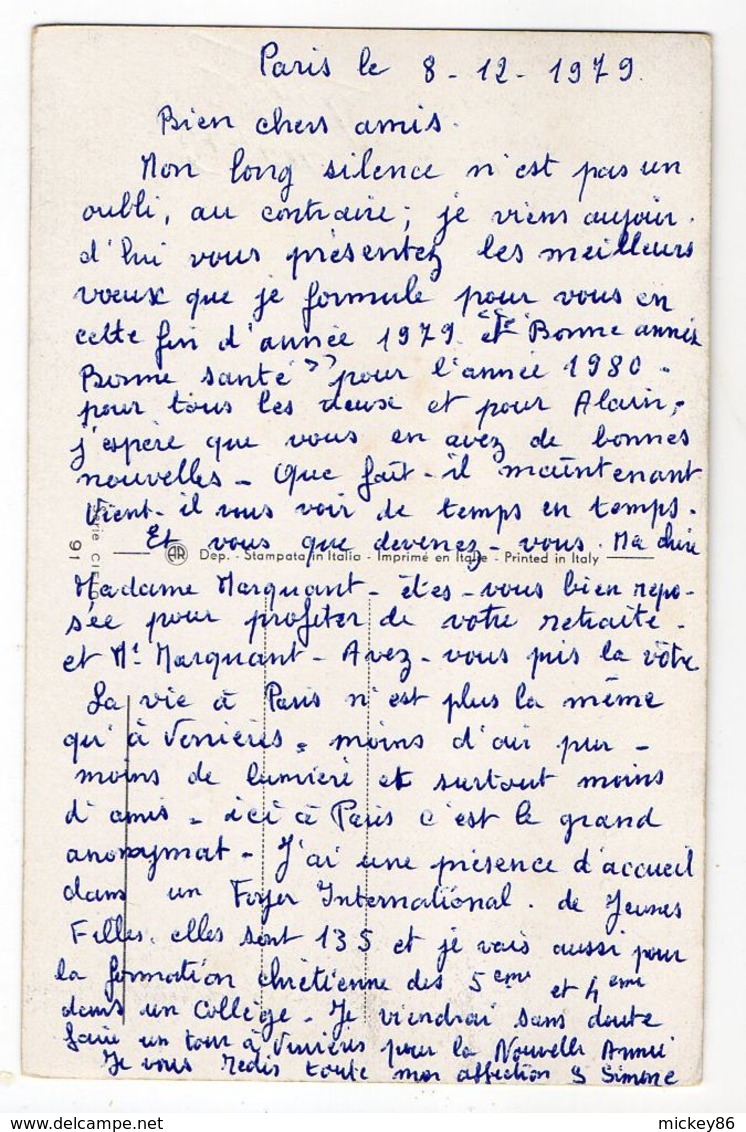 Paris le 8-12-1979.
Bien chers amis.
Mon long silence n'est pas un
oubli, au contraire; je viens aujour-
d'hui vous présentez les meilleurs
voeux que je formule pour vous en
cette fin d'année 1979. et "Bonne année
Bonne santé" pour l'année 1980 -
pour tous les deux et pour Alain,
j'espère que vous en avez de bonnes
nouvelles - Que fait-il maintenant
Vient-il vous voir de temps en temps.
Et vous que devenez-vous. Ma chère
91
AR Dep. - Stampato in Italia - Imprimé en Italie - Printed in Italy
Madame Marquant - êtes-vous bien repo-
sée pour profiter de votre retraite.
et Mr Marquant - Avez-vous pris la vôtre
La vie à Paris n'est plus la même
qu'à Venières - moins d'air pur -
moins de lumière et surtout moins
d'amis - ici à Paris c'est le grand
anonymat - J'ai une présence d'accueil
dans un Foyer International. de Jeunes
Filles. elles sont 135 et je vais aussi pour
la formation chrétienne des 5ème et 4ème
dans un Collège - Je viendrai sans doute
faire un tour à Venières pour la Nouvelle Année
Je vous redis toute mon affection S Simone
mickey86